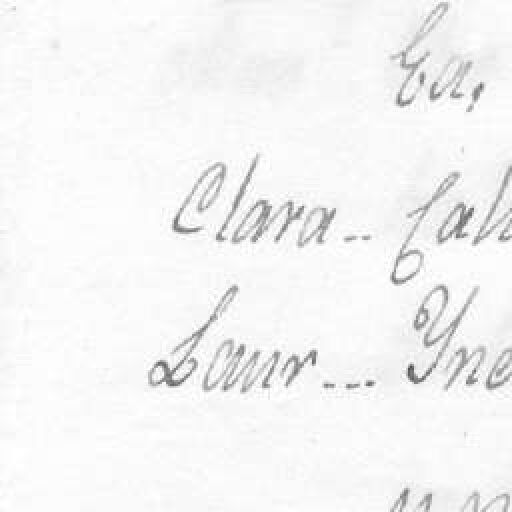 Ea,
Clara -- Cal
Laur --- Yne